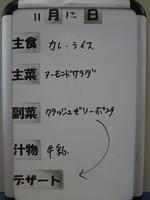 11月12日
主食 カレーライス
主菜 アーモンドサラダ
副菜 クラッシュゼリーポンチ
汁物 牛乳
デザート